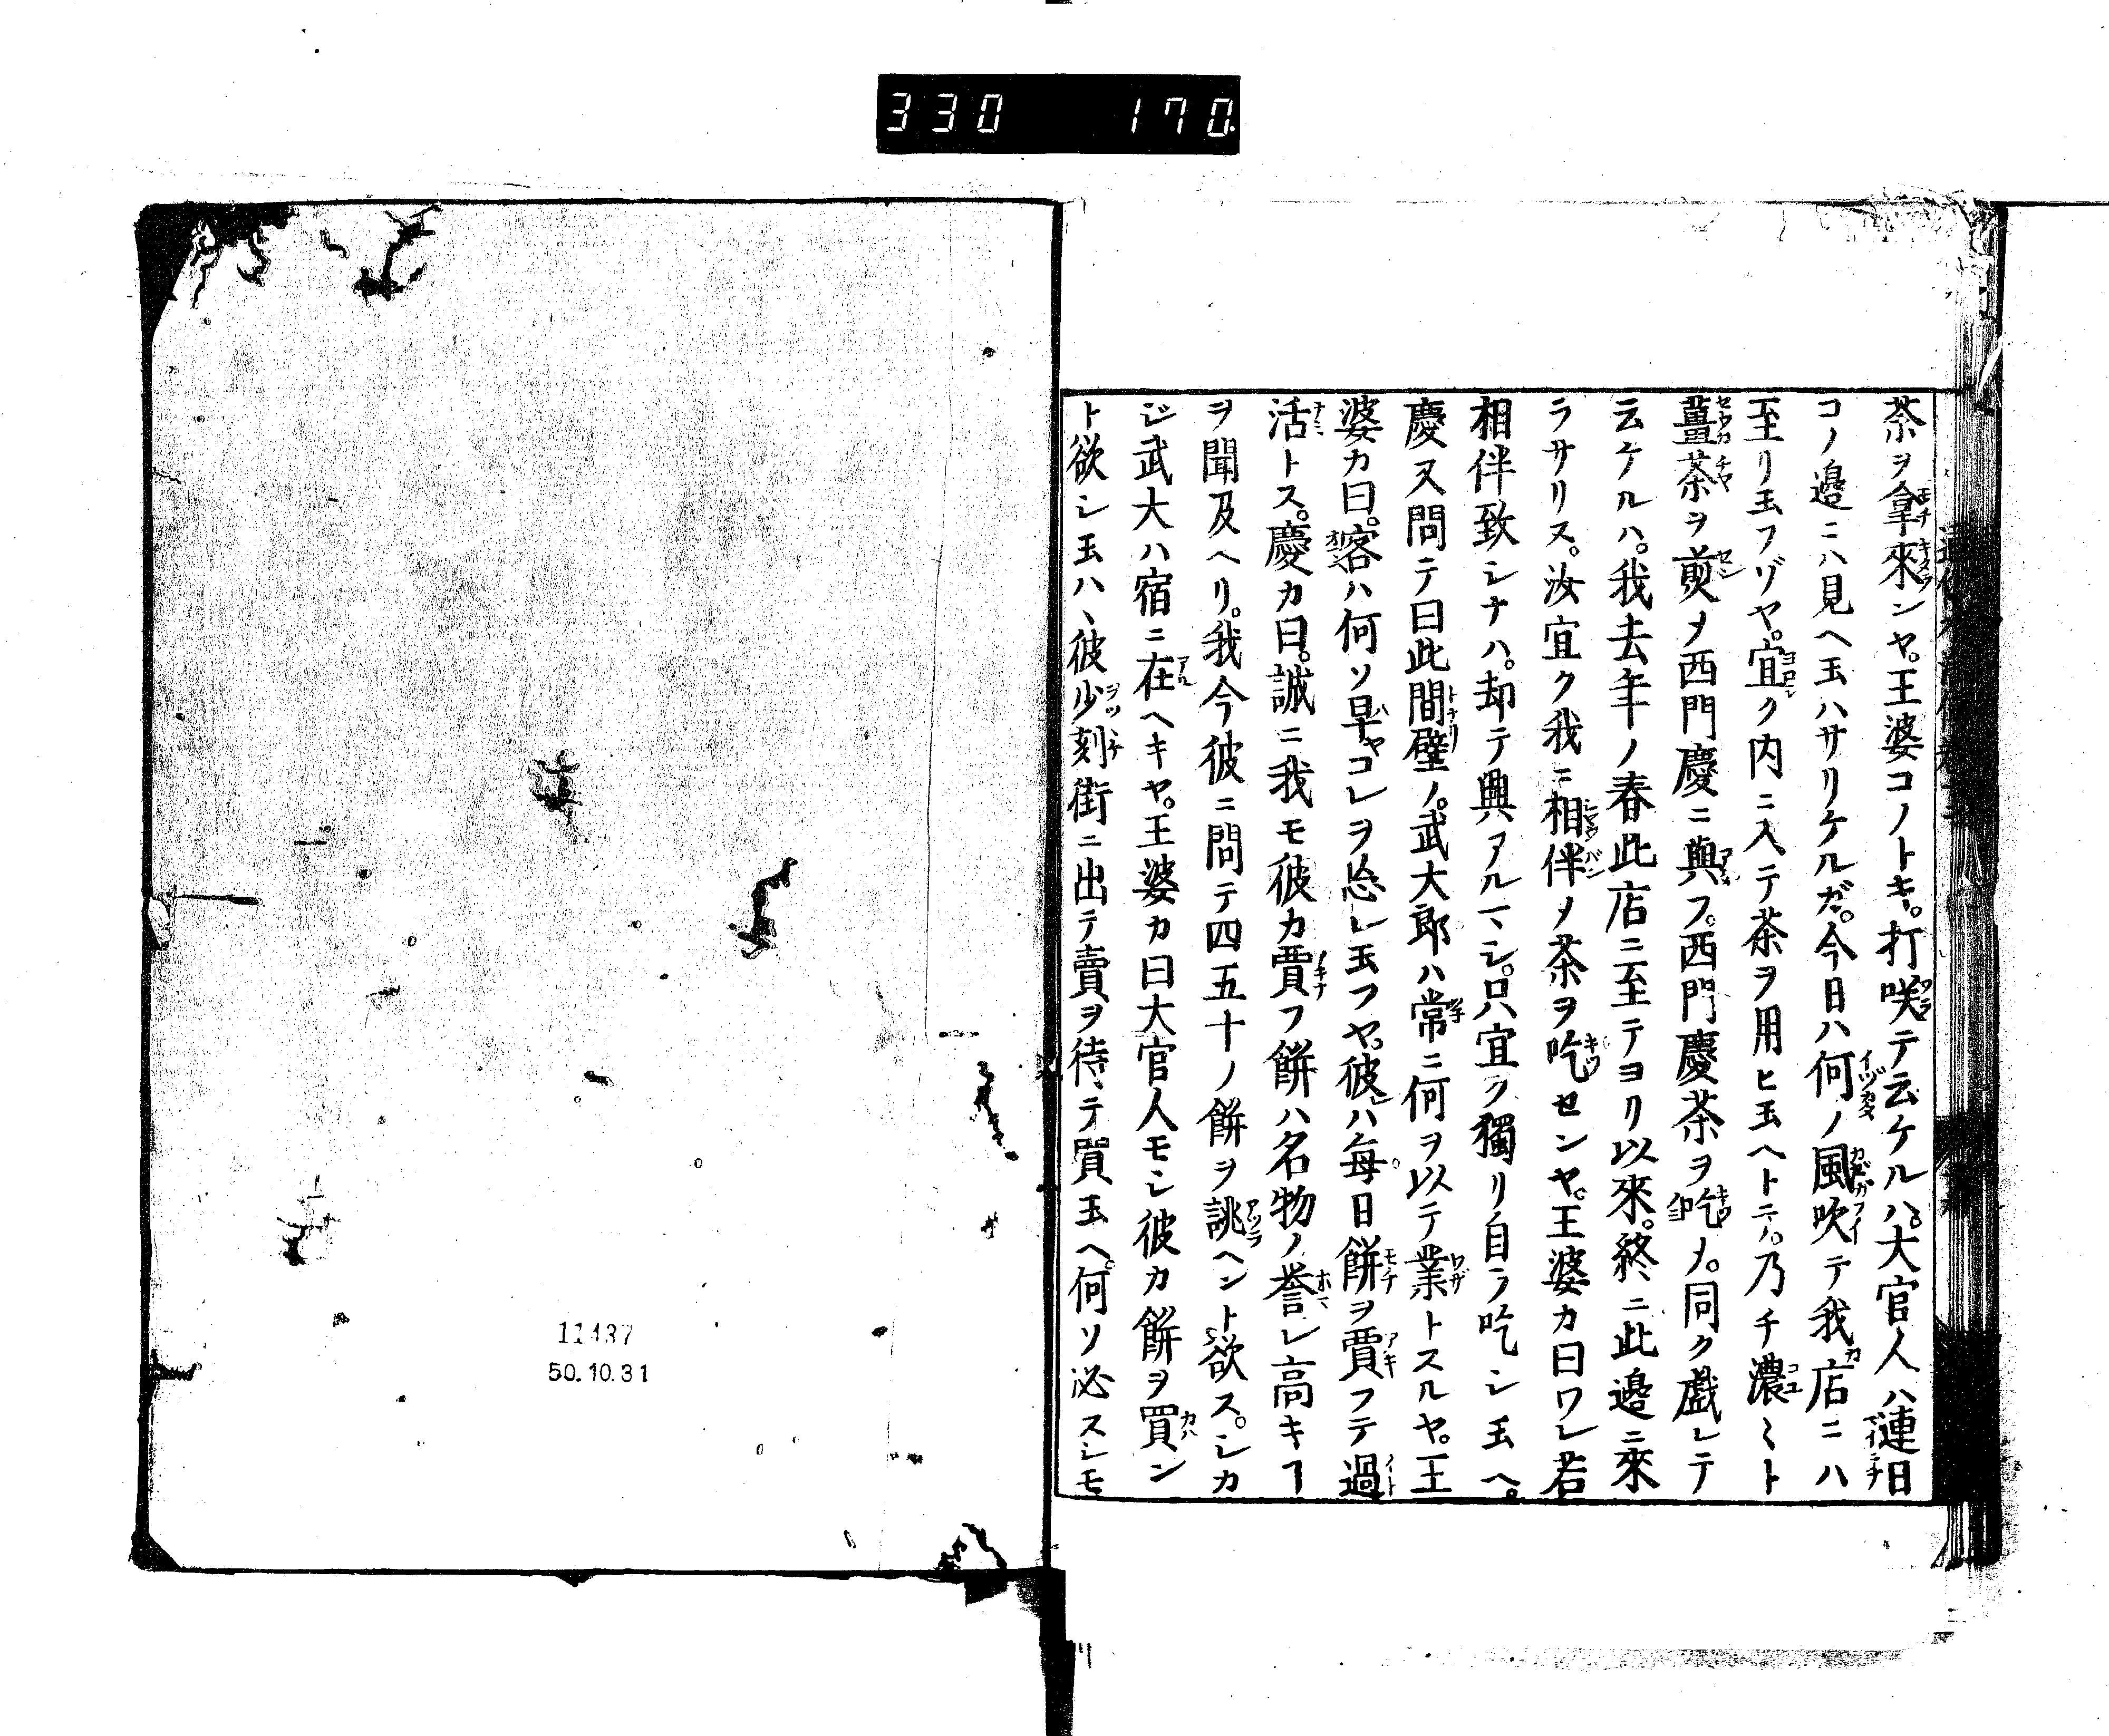 330 170
茶ヲ拿來ンヤ。王婆コノトキ。打咲テ云ケルハ。大官人ハ連日
コノ邉ニハ見ヘ玉ハサリケルガ。今日ハ何ノ風吹テ我店ニハ
至リ玉フゾヤ。宜ク内ニ入テ茶ヲ用ヒ玉ヘトテ。乃チ濃〻ト
薑茶ヲ煎メ西門慶ニ與フ。西門慶茶ヲ吃メ。同ク戯レテ
云ケルハ。我去年ノ春此店ニ至テヨリ以來。終ニ此邉ニ來
ラサリス。汝宜ク我ニ相伴メ茶ヲ吃センヤ。王婆カ曰ワレ若
相伴致シナハ。却テ興アルマシ。只宜ク獨リ自ラ吃シ玉ヘ。
慶又問テ曰此間壁ノ。武大郎ハ常ニ何ヲ以テ業トスルヤ。王
婆カ曰。客ハ何ソ早ヤコレヲ忘レ玉フヤ。彼ハ毎日餅ヲ賣フテ過
活トス。慶カ曰。誠ニ我モ彼カ賣フ餅ハ名物ノ誉レ高キヿ
ヲ聞及ヘリ。我今彼ニ問テ四五十ノ餅ヲ誂ヘント欲ス。シカ
シ武大ハ宿ニ在ヘキヤ。王婆カ曰大官人モシ彼カ餅ヲ買ン
ト欲シ玉ハヽ彼少刻街ニ出テ賣ヲ待テ買玉ヘ。何ソ必スシモ
11437
50.10.31